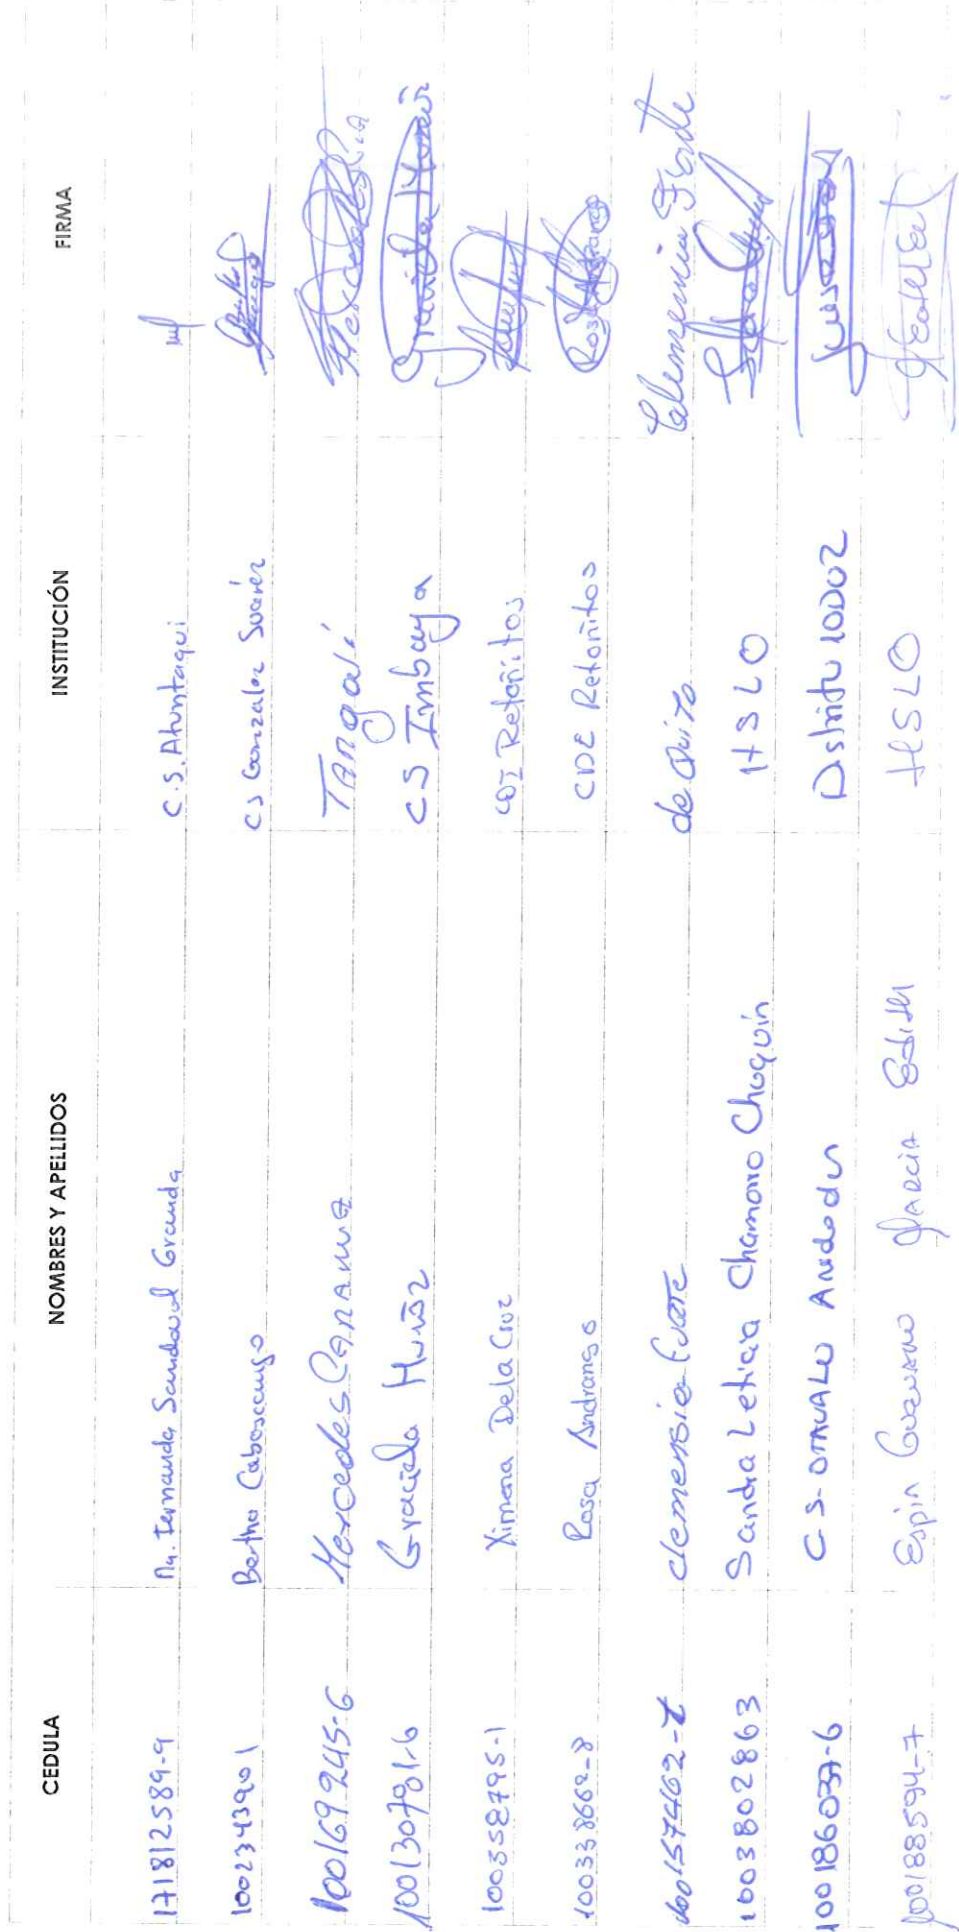 CEDULA NOMBRES Y APELLIDOS INSTITUCIÓN FIRMA
171812589-9 Ma. Fernanda Sandoval Granda C.S. Atuntaqui
1002343901 Bertha Cabascango CS Gonzalez Suárez
100169245-6 Mercedes Tangalí Mercedes
100130781-6 Graciela Muñoz CS Imbaya Graciela Muñoz
100358795-1 Ximena De la Cruz CDI Retoñitos
100338662-8 Rosa Andrango CDI Retoñitos Rosa Andrango
100157462- clemensia de Quito
1003802863 Sandra Leticia Chamorro Chuquín HSLO
100186037-6 CS-OTAVALO Distrito 10D02
100188594-7 Espin Guzmán Marcia Edith HSLO